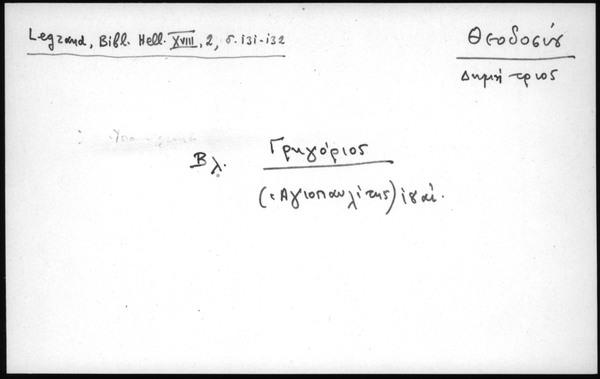 Legrand, Bibl. Hell. XVIII, 2, σ. 131-132
Θεοδοσίου
Δημήτριος
Βλ. Γρηγόριος
(Ἁγιοπαυλίτης)